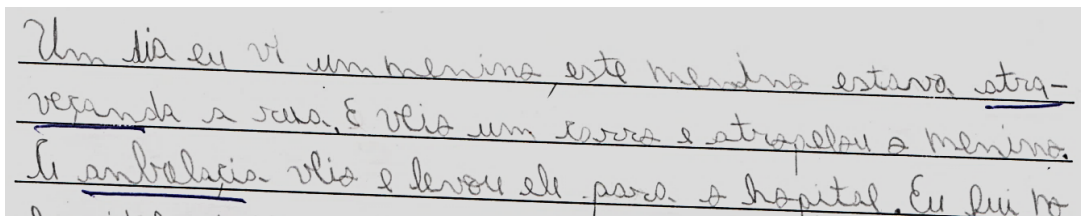 Um dia eu vi um menino, este menino estava atra-
veçando a rua. E veio um carro e atropelou o menino.
A anbolaçia veio e levou ele para o hopital. Eu fui no